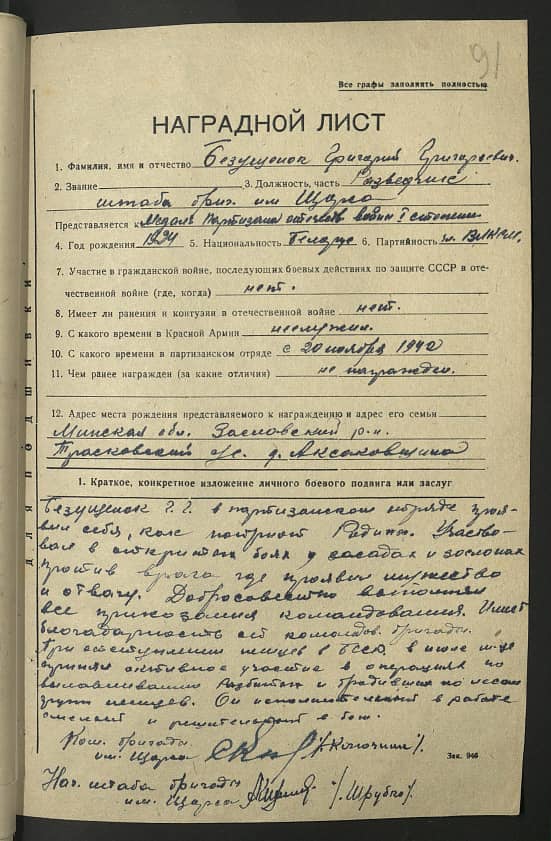 91
Все графы заполнять полностью
НАГРАДНОЙ ЛИСТ
1. Фамилия, имя и отчество Безущенок Григорий Григорьевич
2. Звание 3. Должность, часть Разведчик
штаба бриг. им Щорса
Представляется к Медаль Партизана отечеств войны I степени
4. Год рождения 1924 5. Национальность Белорус 6. Партийность чл. ВЛКСМ.
7. Участие в гражданской войне, последующих боевых действиях по защите СССР в оте-
чественной войне (где, когда) нет.
8. Имеет ли ранения и контузии в отечественной войне нет.
9. С какого времени в Красной Армии неслужил.
10. С какого времени в партизанском отряде с 20 ноября 1942
11. Чем ранее награжден (за какие отличия) не награжден.
12. Адрес места рождения представляемого к награждению и адрес его семьи
Минская обл. Заславский р-н.
с/с. д. Аксаковщина
1. Краткое, конкретное изложение личного боевого подвига или заслуг
Безущенок Г. Г. в партизанском отряде прояв-
вил себя, как патриот Родины. Участво-
вал в открытых боях, засадах и заслонах
против врага, где проявил мужество
и отвагу. Добросовестно выполнял
все приказания командования. Имеет
благодарность от командов. бригады.
При отступлении немцев в БССР, в июле м-це
принял активное участие в операциях по
вылавливанию разбитых и бродивших по лесам
групп немцев. Он исполнительный в работе
смелый и решительный в бою.
Ком. бригады
им. Щорса
Зак. 946
Нач. штаба бригады
им. Щорса /Шрубко/.
для подшивки